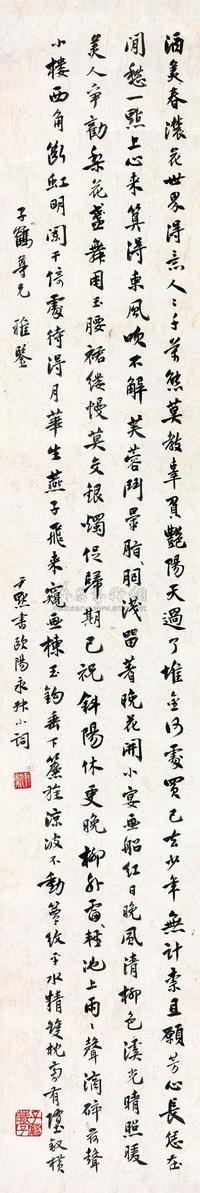 酒美春濃花世界得意人〻千萬態莫教辜負艷陽天過了堆金何處買已去少年無計奈且願芳心長恁在
閒愁一點上心來算得東風吹不解芙蓉鬥暈胭脂浅留著晚花開小宴画船紅日晚風清柳色溪光晴照暖
美人爭勸梨花盞舞困玉腰裙縷慢莫交銀燭促歸期已祝斜陽休更晚柳外雷輕池上雨〻聲滴碎荷聲
小樓西角斷虹明闌干倚處待得月華生燕子飛來窺画棟玉鉤垂下簾旌涼波不動簟紋平水精雙枕旁有墮釵橫
子鶴尊兄雅鑒
尹默書歐陽永叔小詞